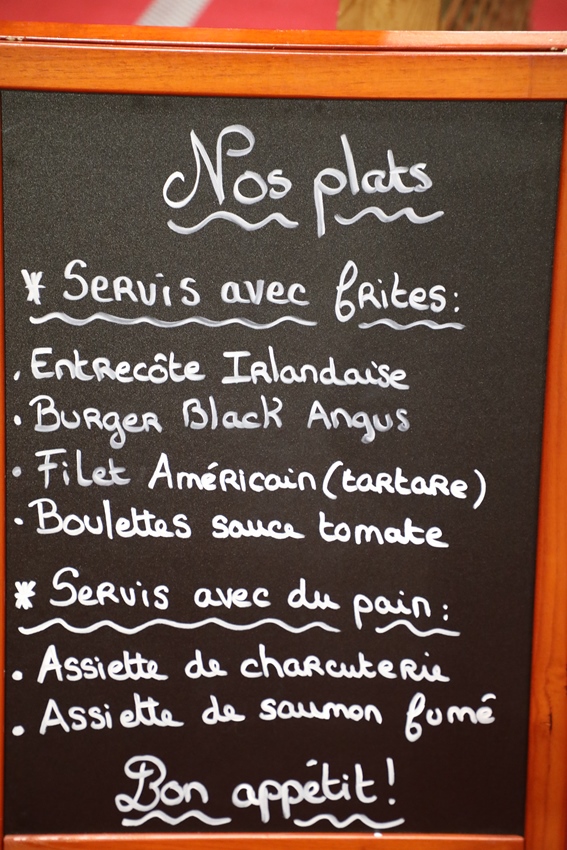 Nos plats
* Servis avec frites:
. Entrecôte Irlandaise
. Burger Black Angus
. Filet Américain (tartare)
. Boulettes sauce tomate
* Servis avec du pain:
. Assiette de charcuterie
. Assiette de saumon fumé
Bon appétit!